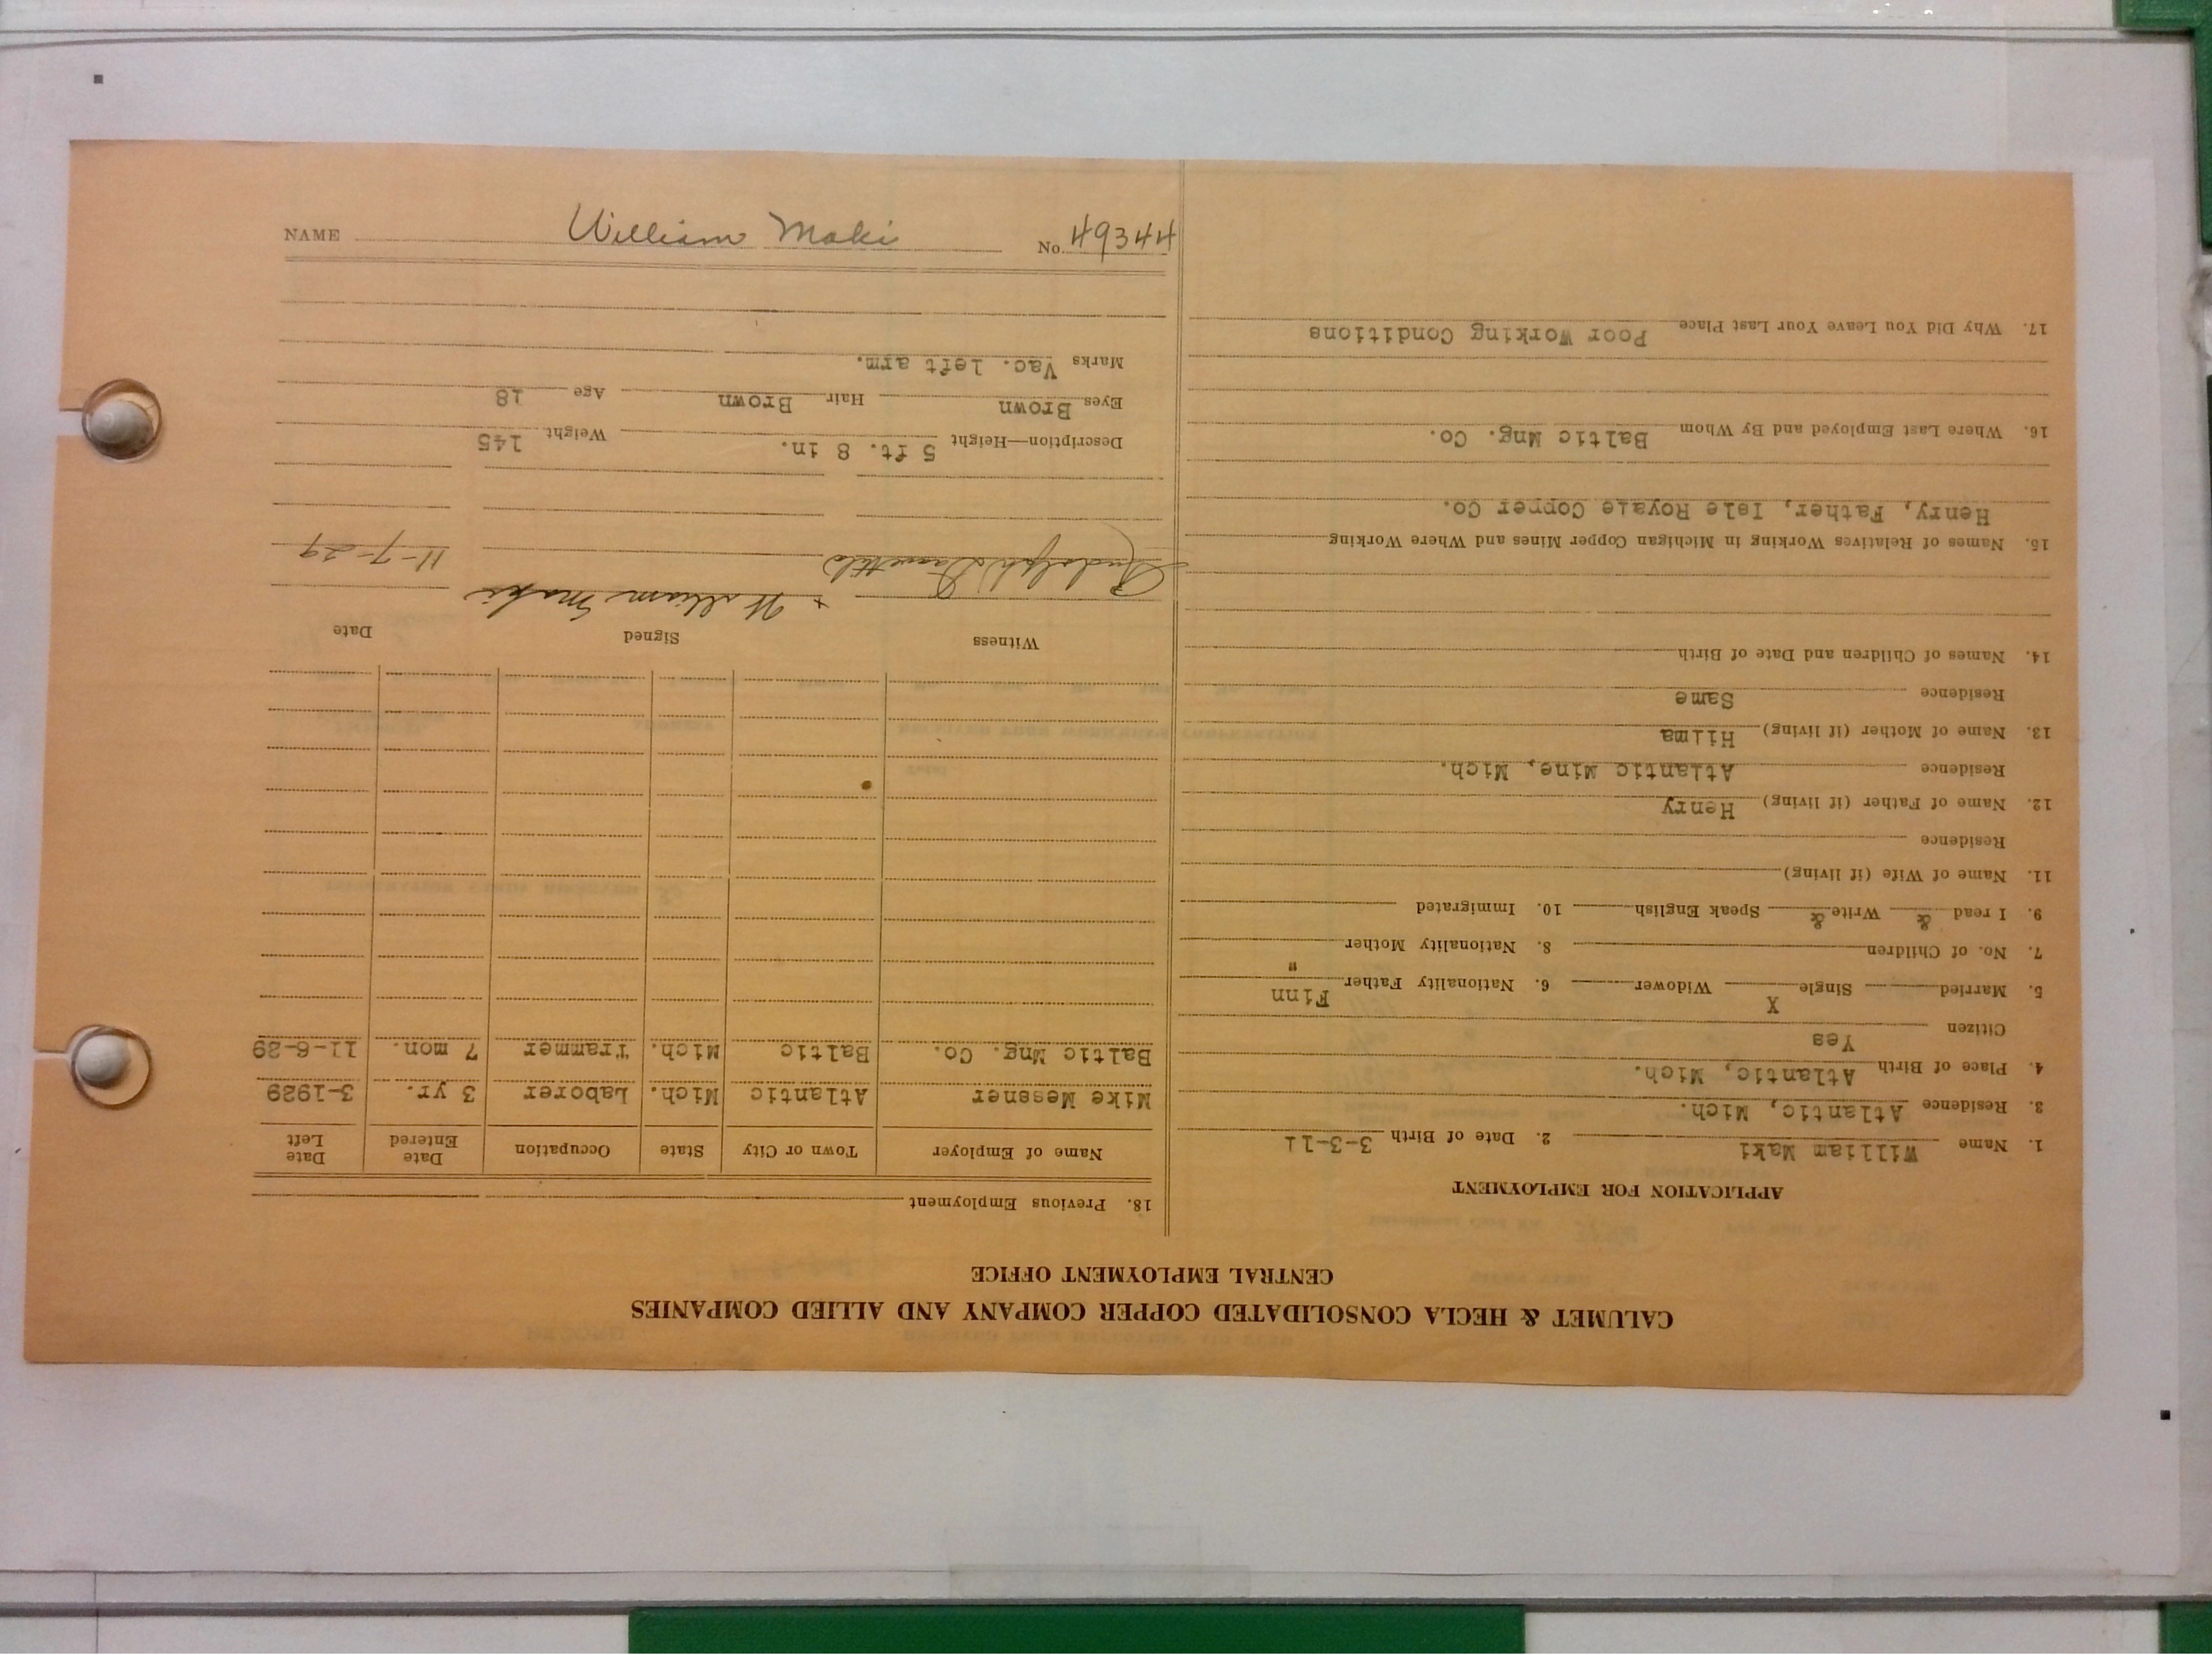 CALUMET & HECLA CONSOLIDATED COPPER COMPANY AND ALLIED COMPANIES
CENTRAL EMPLOYMENT OFFICE
APPLICATION FOR EMPLOYMENT
1. Name William Maki 2. Date of Birth 3-3-11
3. Residence Atlantic, Mich.
4. Place of Birth Atlantic, Mich.
Citizen Yes
5. Married Single X Widower 6. Nationality Father Finn
7. No. of Children 8. Nationality Mother "
9. I read & Write & Speak English 10. Immigrated
11. Name of Wife (if living)
Residence
12. Name of Father (if living) Henry
Residence Atlantic Mine, Mich.
13. Name of Mother (if living) Hilma
Residence Same
14. Names of Children and Date of Birth
15. Names of Relatives Working in Michigan Copper Mines and Where Working
Henry, Father, Isle Royale Copper Co.
16. Where Last Employed and By Whom Baltic Mng. Co.
17. Why Did You Leave Your Last Place Poor Working Conditions
18. Previous Employment
Name of Employer Town or City State Occupation Date Entered Date Left
Mike Messner Atlantic Mich. Laborer 3 yr. 3-1929
Baltic Mng. Co. Baltic Mich. Trammer 7 mon. 11-6-29
Witness Signed Date
Rudolph x William Maki 11-7-29
Description—Height 5 ft. 8 in. Weight 145
Eyes Brown Hair Brown Age 18
Marks Vac. left arm.
NAME William Maki No. 49344